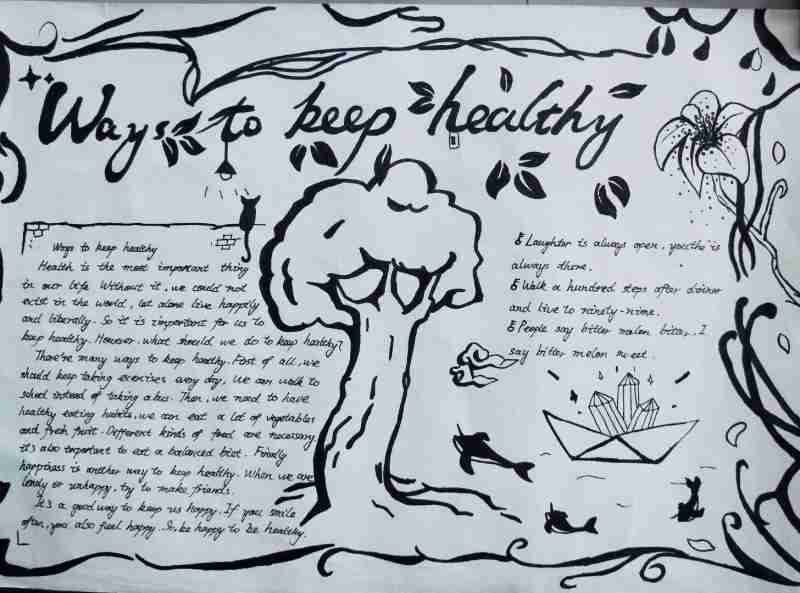 Ways to keep healthy
Ways to keep healthy
Health is the most important thing
in our life. Without it, we could not
exist in the world, let alone live happily
and liberally. So it is important for us to
keep healthy. However, what should we do to keep healthy?
There're many ways to keep healthy. First of all, we
should keep taking exercises every day, We can walk to
school instead of taking a bus. Then, we need to have
healthy eating habits, we can eat a lot of vegetables
and fresh fruit. Different kinds of food are necessary.
it's also important to eat a balanced diet. Finally
happiness is another way to keep healthy. When we are
lonely or unhappy, try to make friends.
It's a good way to keep us happy. If you smile
often, you also feel happy. So, be happy to be healthy.
Laughter is always open, is
always there.
Walk a hundred steps after dinner
and live to ninety-nine.
People say bitter melon bitter, I
say bitter melon sweet.